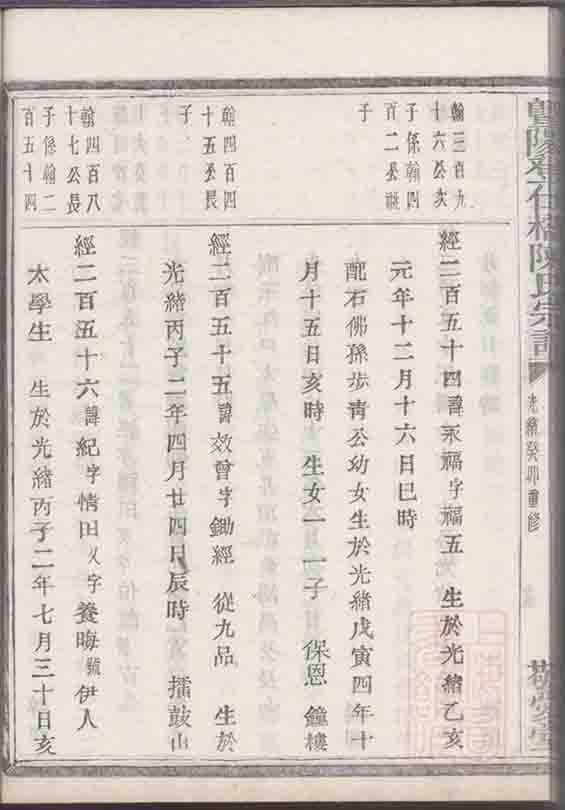 光緒癸卯重修
翰三百九
十六公次
子係翰四
百二公祧
子
經二百五十四諱永福字福五 生於光緒乙亥
元年十二月十六日巳時
配石佛孫步青公幼女生於光緒戊寅四年十
月十五日亥時 生女一 一子 保恩 鐘樓
翰四百四
十五公長
子
經二百五十五諱效曾字鋤經 從九品 生於
光緒丙子二年四月廿四日辰時 擂鼓山
翰四百八
十七公長
子係翰二
百五十四
經二百五十六諱紀字情田又字養晦號伊人
太學生 生於光緒丙子二年七月三十日亥